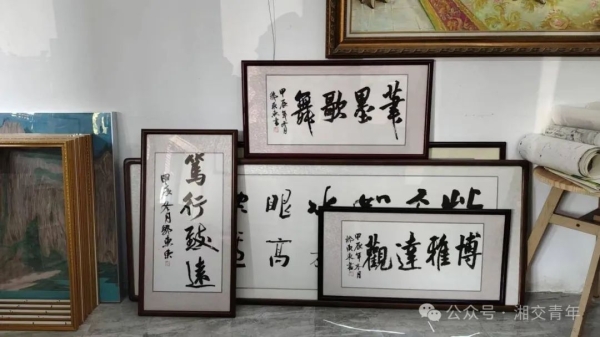 筆墨歌舞
甲辰年冬月
篤行致遠
甲辰冬月
博雅達觀
甲辰年冬月
眼
高
公众号·湘交青年